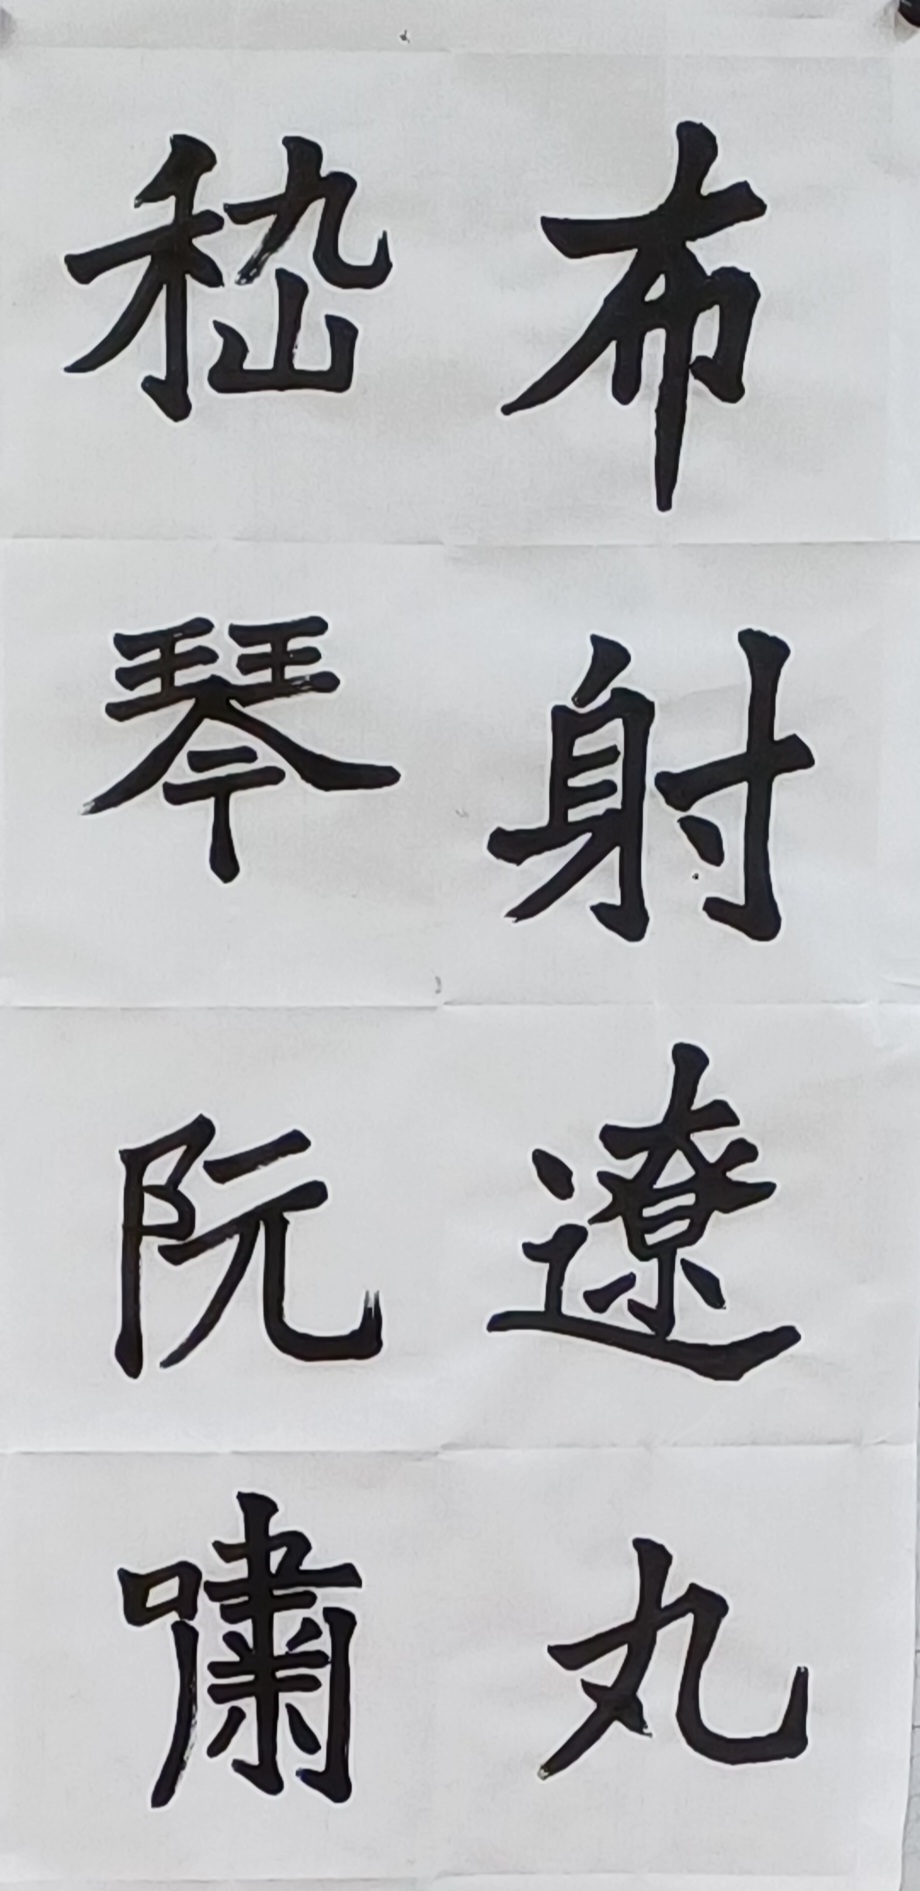 布射遼丸
嵇琴阮嘯